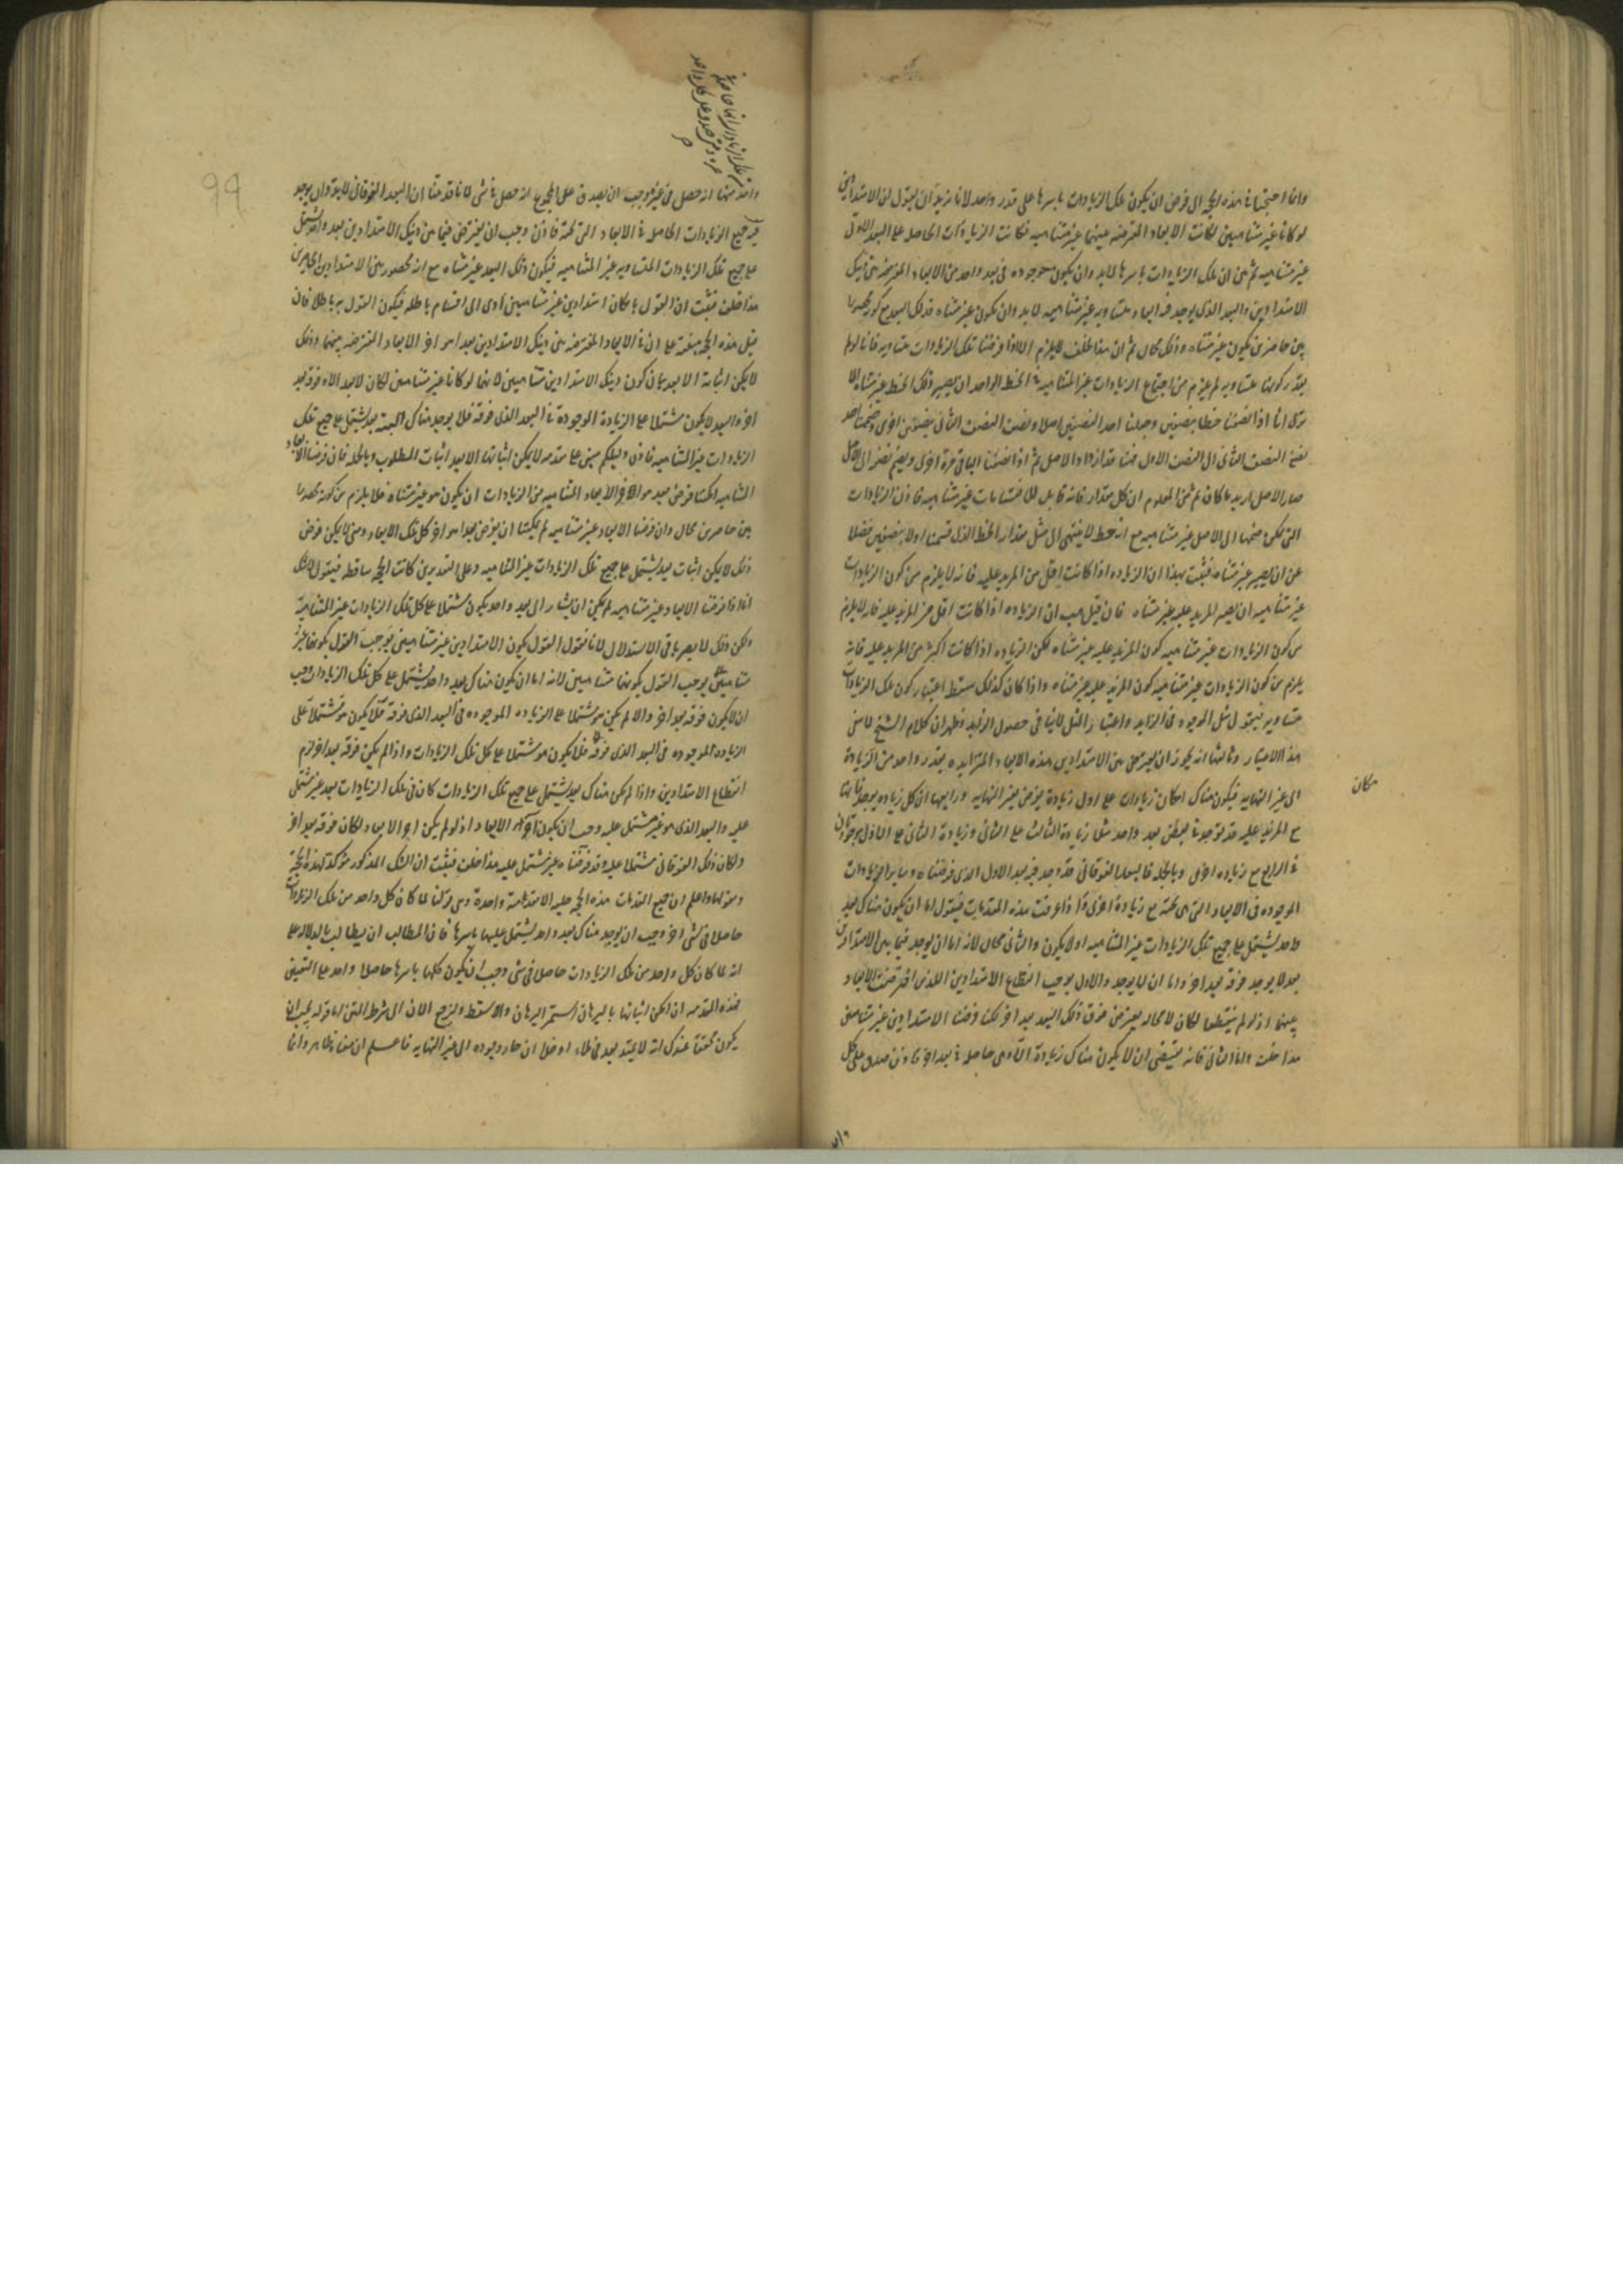 وانما احتجنا فى هذه الحجة الى فرض ان يكون تلك الزيادات باسرها على قدر واحد لانا نريد ان نقول ان الامتدادين
لو كانا غير متناهيين لكانت الابعاد المفترضة بينهما غير متناهيه فكانت الزيادات الحاصله على البعد الاول
غير متناهيه ثم نبين ان تلك الزيادات باسرها لابد وان يكون موجوده فى بعد واحد من الابعاد المفترضه بين ذينك
الامتدادين والبعد الذى يوجد فيه ابعاد متساويه غير متناهيه لابد وان يكون غير متناه فذلك البعد مع كونه محصورا
بين حاصرين يكون غير متناه وذلك محال ثم ان هذا الخلف لايلزم الا اذا فرضنا تلك الزيادات متساويه فانا لو لم
نقدر كونها متساويه لم يلزم من اجتماع الزيادات غير المتناهية فى الخط الواحد ان يصير ذلك الخط غير متناه الا
ترى انا اذا نصفنا خطا بنصفين وجعلنا احد النصفين اصلا ونصف النصف الثانى بنصفين اخرى وضممنا احد
نصفى النصف الثانى الى النصف الاول فهنا قد ازداد الاصل ثم اذا نصفنا الباقى مرة اخرى ويضم نصفه الى الاصل
صار الاصل ازيد ما كان ثم من المعلوم ان كل مقدار فانه قابل للانقسامات غير متناهيه فاذن الزيادات
التى يمكن ضمها الى الاصل غير متناهيه مع انه قط لا ينتهى الى مثل مقدار الخط الذى قسمنا اولا بنصفين فضلا
عن ان يصير غير متناه فثبت بهذا ان الزياده اذا كانت اقل من المزيد عليه فانه لايلزم من كون الزيادات
غير متناهيه ان يصير المزيد عليه غير متناه فان قيل هب ان الزياده اذا كانت اقل من المزيد عليه فانه لايلزم
من كون الزيادات غير متناهيه كون المزيد عليه غير متناه لكن الزياده اذا كانت اكثر من المزيد عليه فانه
يلزم من كون الزيادات غير متناهيه كون المزيد عليه غير متناه واذا كان كذلك سقط اعتبار كون تلك الزيادات
متساويه فنقول المثل الموجود فى الزايد واعتبار المثل كاف فى حصول الزايد فظهر ان كلام الشيخ لا ينفى
هذا الاعتبار وثالثها انه يجوز ان يفترض بين الامتدادين هذه الابعاد المتزايده بقدر واحد من الزيادة
الى غير النهايه فيكون هناك امكان زيادات على اول زيادة يفرض بغير النهايه ورابعها ان كل زياده يوجد فانها
مكان
مع المزيد عليه قد توجد فى بعد واحد مثل زيادة الثالث على الثانى وزيادة الثانى على الاول موجودتان
فى الرابع مع زياده اخرى وبالجمله فالبعد الفوقانى قد وجد فيه البعد الاول الذى فرضناه وساير الزيادات
الموجوده فى الابعاد التى تحته مع زيادة اخرى اذا عرفت هذه المقدمات فنقول اما ان يكون هناك بعد
واحد يشتمل على جميع تلك الزيادات غير المتناهيه او لا يكون والثانى محال لانه اما ان يوجد فيما بين الامتدادين
بعد لا يوجد فوقه بعد اخر واما ان لا يوجد والاول يوجب انقطاع الامتدادين اللذين افترضت الابعاد
بينهما اذ لو لم ينقطعا لكان لا محاله يعترض فوق ذلك البعد بعد اخر لكنا فرضنا الامتدادين غير متناهيين
هذا خلف واما الثانى فانه يقتضى ان لا يكون هناك زيادة الا وهى حاصلة فى بعد اخر فاذن صدق على كل
واحد منها انه حصل فى غيره وجب ان يصدق على المجموع انه حصل فى شى لانا قد بينا ان البعد الفوقانى لابد وان يوجد
فيه جميع الزيادات الحاصلة فى الابعاد التى تحته فاذن وجب ان يفترض فيما بين ذينك الامتدادين بعد واحد يشتمل
على جميع تلك الزيادات المتساويه غير المتناهيه فيكون ذلك البعد غير متناه مع انه محصور بين الامتدادين الحاصرين
هذا خلف فثبت ان القول بامكان امتدادين غير متناهيين ادى الى اقسام باطله فيكون القول به باطلا فان
قيل هذه الحجه مبنية على ان فى الابعاد المفترضه بين ذينك الامتدادين بعدا هو اخر الابعاد المفترضه بينهما وذلك
لا يمكن اثباته الا بعد بيان كون ذينك الامتدادين متناهيين لانهما لو كانا غير متناهيين لكان لابعد الا وفوقه بعد
اخر والبعد لا يكون مشتملا على الزيادة الموجودة فى البعد الذى فوقه فلا يوجد هناك البتة بعد يشتمل على جميع تلك
الزيادات غير المتناهيه فاذن دليلكم مبنى على مقدمه لا يمكن اثباتها الا بعد اثبات المطلوب وبالجمله فان فرضنا الابعاد
المتناهيه امكننا فرض بعد هو اخر الابعاد المتناهيه من الزيادات ان يكون هو غير متناه فلا يلزم من كونه محصورا
بين حاصرين محال وان فرضنا الابعاد غير متناهيه لم يمكننا ان نفرض بعدا هو اخر كل تلك الابعاد ومتى لا يمكن فرض
ذلك لا يمكن اثبات بعد يشتمل على جميع تلك الزيادات غير المتناهيه وعلى التقديرين كانت الحجه ساقطه فنقول لا شك
انا اذا فرضنا الابعاد غير متناهيه لم يمكن ان يشار الى بعد واحد يكون مشتملا على كل تلك الزيادات غير المتناهية
ولكن ذلك لا يضرنا فى الاستدلال لانا نقول القول بكون الامتدادين غير متناهيين يوجب القول بكونهما غير
متناهيين يوجب القول بكونهما متناهيين لانه اما ان يكون هناك بعد واحد يشتمل على كل تلك الزيادات وجب
ان لا يكون فوقه بعد اخر والا لم يكن هو مشتملا على الزياده الموجوده فى البعد الذى فوقه فلا يكون هو مشتملا على
الزياده الموجوده فى البعد الذى فوقه فلا يكون هو مشتملا على كل تلك الزيادات واذا لم يكن فوقه بعد اخر لزم
انقطاع الامتدادين واذا لم يكن هناك بعد يشتمل على جميع تلك الزيادات كان فى تلك الزيادات بعد غير مشتمل
عليه والبعد الذى هو غير مشتمل عليه وجب ان يكون آخر الابعاد اذ لو لم يكن اخر الابعاد لكان فوقه بعد اخر
ولكان ذلك الفوقانى مشتملا عليه وقد فرضناه غير مشتمل عليه هذا خلف فثبت ان الشك المذكور مؤكد لهذه الحجة
ومقو لها واعلم ان جميع المقدمات هذه الحجه جليه الا مقدمة واحدة وهى قولنا لما كان كل واحد من تلك الزيادات
حاصلا فى شى اخر وجب ان يوجد هناك بعد واحد يشتمل عليها باسرها فان لطالب ان يطالب بالدلاله على
انه لما كان كل واحد من تلك الزيادات حاصلا فى شى وجب ان يكون كلها باسرها حاصلا واحد على التعيين
فهذه المقدمه ان امكن اثباتها بالبرهان استمر البرهان والا سقط ولنرجع الان الى شرط المتن اما قوله يجب ان
يكون محققا عندك انه لا يمتد بعد فى ملاء او خلاء ان جاز وجوده الى غير النهايه فاعلم ان معناه ظاهر وانما
99